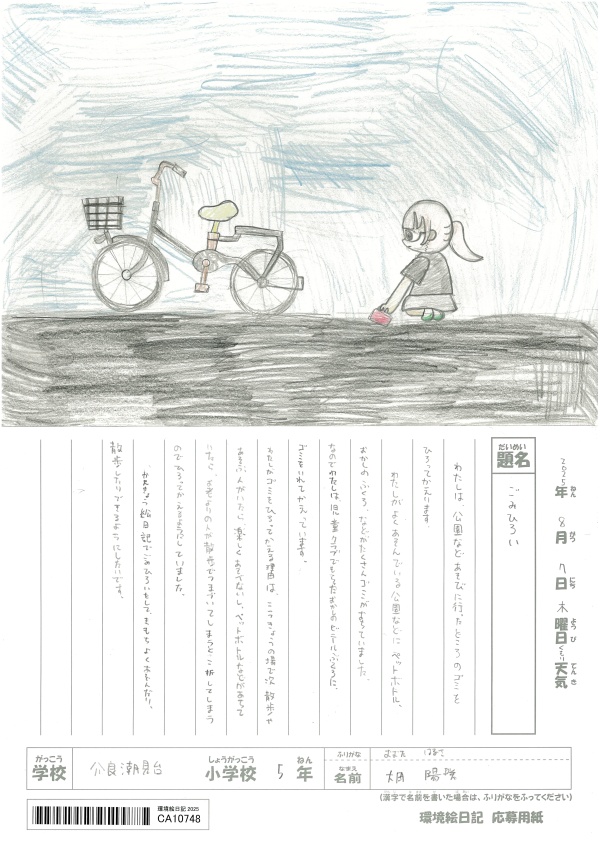 2025年 8月 7日 木曜日 天気 くもり
ねん がつ にち ようび てんき
だいめい
題名
ごみひろい
わたしは、公園など、あそびに行ったところのゴミを
ひろってかえります。
わたしがよくあそんでいる公園などに ペットボトル、
おかしのふくろ、などがたくさんゴミがおちていました。
なのでわたしは、児童クラブでもらったおかしのビニールぶくろに、
ゴミをいれてかえっています。
わたしがゴミをひろってかえる理由は、こうきょうの場で次、散歩や
あそぶ人がいたら、楽しくあそべないし、ペットボトルなどがあって
いたら、お年よりの人が散歩でつまづいてしまうとこっ折してしまう
のでひろってかえるようにしていました。
かんきょう絵日記でごみひろいをして、きもちよくあそんだり、
散歩したりできるようにしたいです。
がっこう
学校
公良潮見台
しょうがっこう
小学校
5
ねん
年
ふりがな
なまえ
名前
陽咲
(漢字で名前を書いた場合は、ふりがなをふってください)
環境絵日記 応募用紙
環境絵日記 2025
CA10748